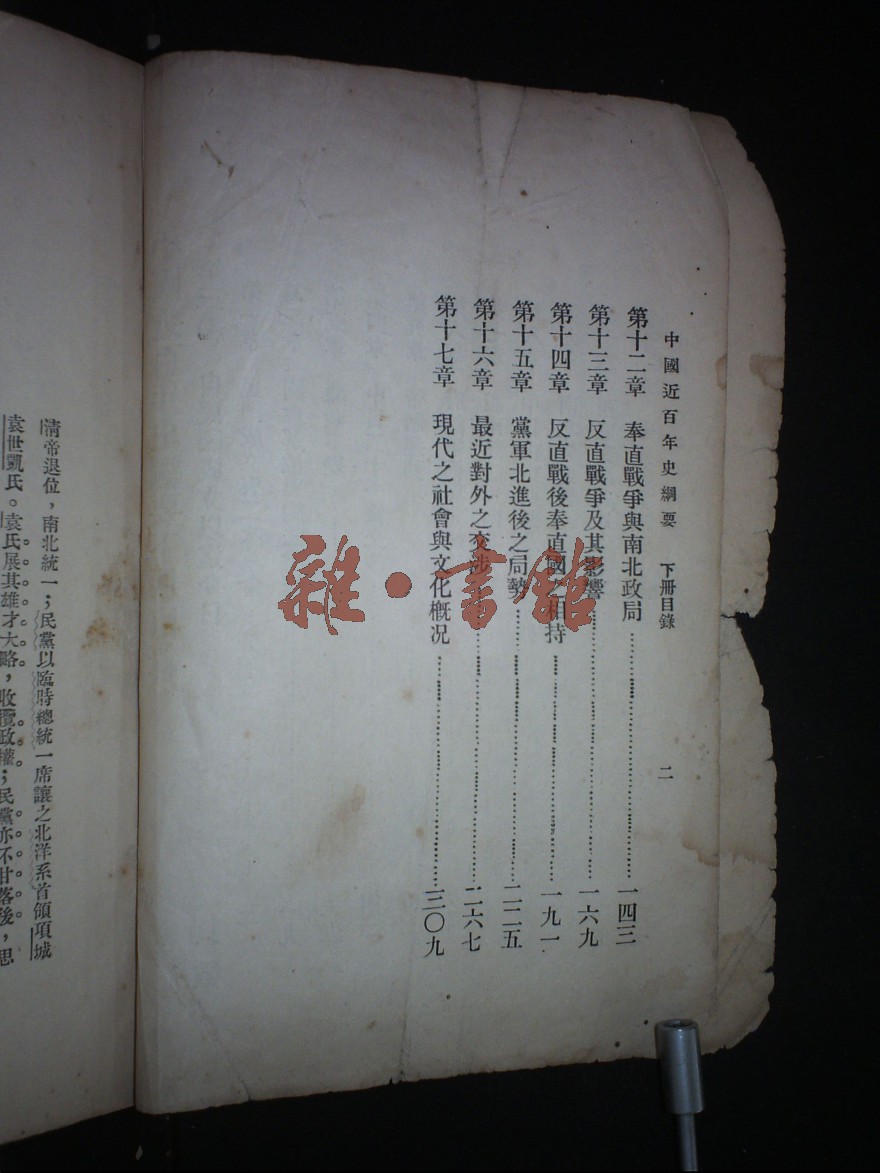 中國近百年史綱要 下冊目錄 二
第十二章 奉直戰爭與南北政局 一四三
第十三章 反直戰爭及其影響 一六九
第十四章 反直戰後奉直國 相持 一九一
第十五章 黨軍北進後之局勢 二二五
第十六章 最近對外之交涉 二六七
第十七章 現代之社會與文化概況 三〇九
雜·書館
清帝退位,南北統一;民黨以臨時總統一席讓之北洋系首領項城
袁世凱氏。袁氏展其雄才大略,收攬政權;民黨亦不甘落後,思